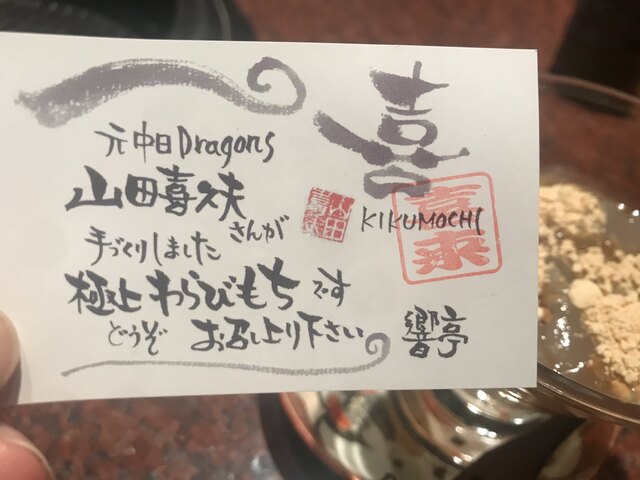 元中日Dragons
山田喜久夫
さんが
手づくりしました
極上わらびもちです
どうぞ お召し上り下さい
喜
KIKUMOCHI
喜来
響亭